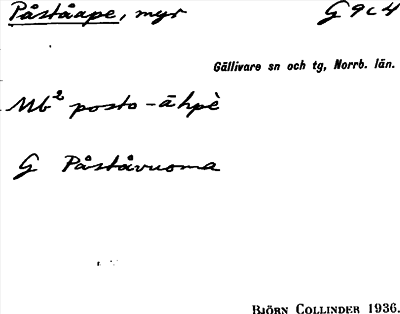 Påståape, myr G 9c4
Gällivare sn och tg, Norrb. län.
Mb² posto-āhpè
G Påståvuoma
BJÖRN COLLINDER 1936.